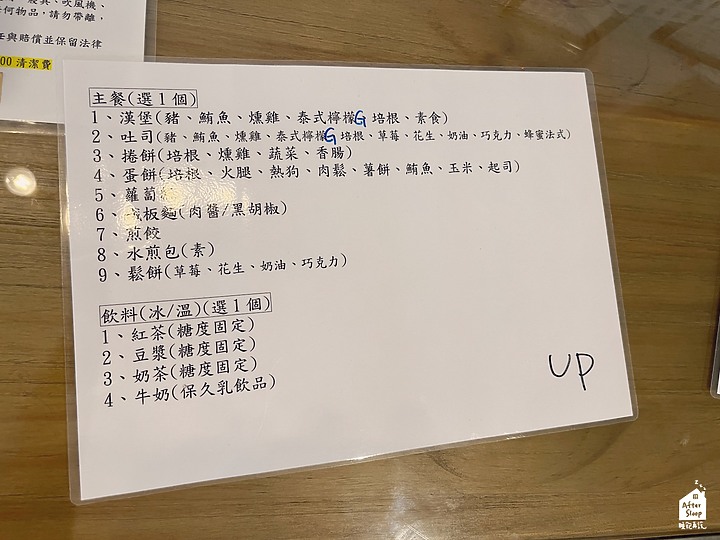 寢具、吹風機、
任何物品,請勿帶離,
任與賠償並保留法律
00清潔費
主餐(選1個)
1、漢堡(豬、鮪魚、燻雞、泰式檸檬G 培根、素食)
2、吐司(豬、鮪魚、燻雞、泰式檸檬G 培根、草莓、花生、奶油、巧克力、蜂蜜法式)
3、捲餅(培根、燻雞、蔬菜、香腸)
4、蛋餅(培根、火腿、熱狗、肉鬆、薯餅、鮪魚、玉米、起司)
5、蘿蔔
6、鐵板麵(肉醬/黑胡椒)
7、煎餃
8、水煎包(素)
9、鬆餅(草莓、花生、奶油、巧克力)
飲料(冰/溫)(選1個)
1、紅茶(糖度固定)
2、豆漿(糖度固定)
3、奶茶(糖度固定)
4、牛奶(保久乳飲品)
UP
After
Sleep